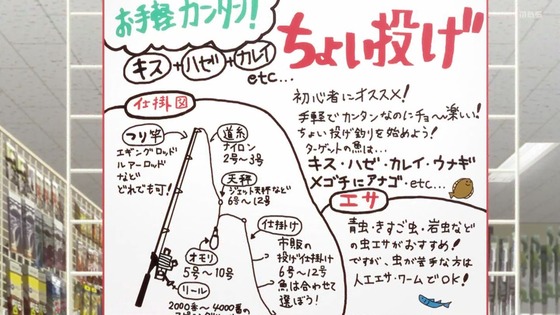 お手軽カンタン!
ちょい投げ
キス+ハゼ+カレイ
etc...
仕掛図
つり竿
エギングロッド
ルアーロッド
などど
どれでも可!
道糸
ナイロン
2号〜3号
天秤
ジェット天秤など
6号〜12号
オモリ
5号〜10号
リール
2000番〜4000番
仕掛け
市販の
投げ仕掛け
6号〜12号
魚は合わせて
選ぼう!
初心者にオススメ!
手軽でカンタンなのにチョ〜楽しい!
ちょい投げ釣りを始めよう!
ターゲットの魚は...
キス・ハゼ・カレイ・ウナギ
メゴチにアナゴ・etc...
エサ
青虫・きすご虫・岩虫などの
の虫エサがおすすめ!
ですが、虫が苦手な方は
人工エサ・ワームでOK!